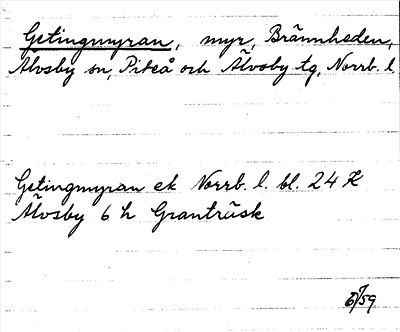 Getingmyran, myr, Brännheden,
Älvsby sn, Piteå och Älvsby tg, Norrb. l.
Getingmyran ek Norrb. l. bl. 24 K
Älvsby 6 h Granträsk